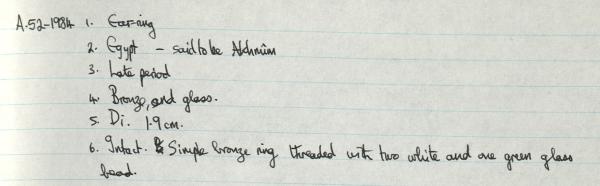 A.52-1984 1. Ear-ring
2. Egypt - said to be Akhmîm
3. Late period
4. Bronze, and glass.
5. Di. 1.9cm.
6. Intact. Simple bronze ring threaded with two white and one green glass
bead.